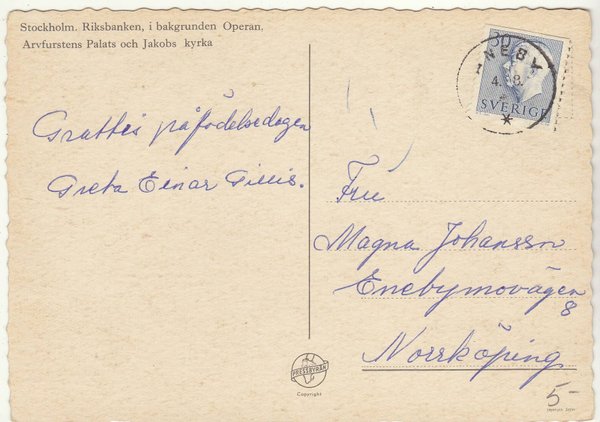 Stockholm. Riksbanken, i bakgrunden Operan,
Arvfurstens Palats och Jakobs kyrka
30
NEBY
4. 8.
SVERIGE
Grattis på födelsedagen
Greta Einar Gillis.
Fru
Magna Johansson
Enebymovägen
8
Norrköping
PRESSBYRÅN
Copyright
5-